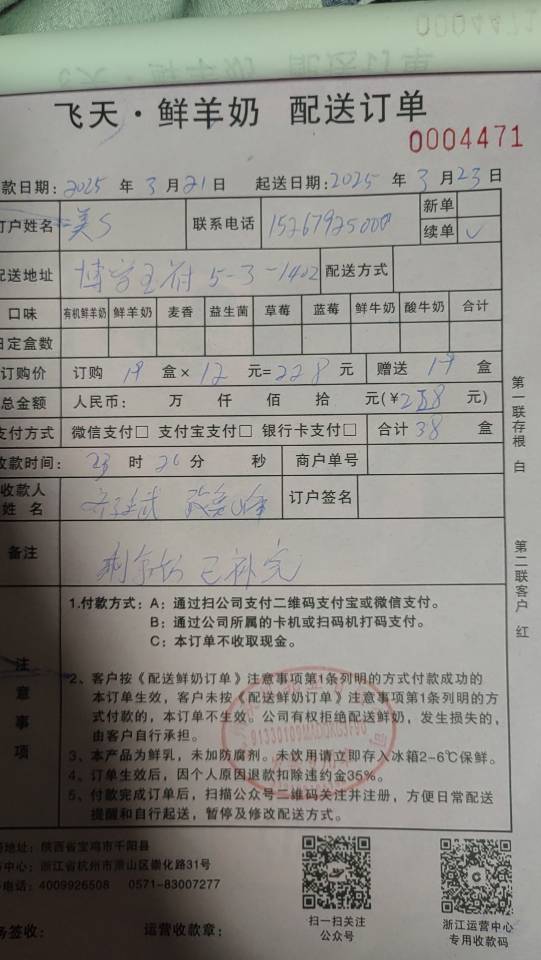 飞天·鲜羊奶 配送订单
0004471
款日期: 2025 年 3 月 21 日 起送日期: 2025 年 3 月 23 日
订户姓名 美S 联系电话 15267925000 新单
续单 ✓
配送地址 5-3-1402 配送方式
口味 有机鲜羊奶 鲜羊奶 麦香 益生菌 草莓 蓝莓 鲜牛奶 酸牛奶 合计
日定盒数
订购价 订购 19 盒× 12 元= 228 元 赠送 19 盒
总金额 人民币: 万 仟 佰 拾 元(¥ 228 元)
支付方式 微信支付□ 支付宝支付□ 银行卡支付□ 合计 38 盒
收款时间: 23 时 26 分 秒 商户单号
收款人
姓 名 订户签名
备注 已补完
第一联存根 白
第二联客户 红
注意事项
1.付款方式: A: 通过扫公司支付二维码支付宝或微信支付。
B: 通过公司所属的卡机或扫码机打码支付。
C: 本订单不收取现金。
2、客户按《配送鲜奶订单》注意事项第1条列明的方式付款成功的
本订单生效，客户未按《配送鲜奶订单》注意事项第1条列明的方
式付款的，本订单不生效。公司有权拒绝配送鲜奶，发生损失的，
由客户自行承担。
3、本产品为鲜乳，未加防腐剂。未饮用请立即存入冰箱2-6℃保鲜。
4、订单生效后，因个人原因退款扣除违约金35%。
5、付款完成订单后，扫描公众号二维码关注并注册，方便日常配送
提醒和自行起送，暂停及修改配送方式。
地址: 陕西省宝鸡市千阳县
中心: 浙江省杭州市萧山区崇化路31号
电话: 4009926508 0571-83007277
签收: 运营收款章:
扫一扫关注
公众号
浙江运营中心
专用收款码